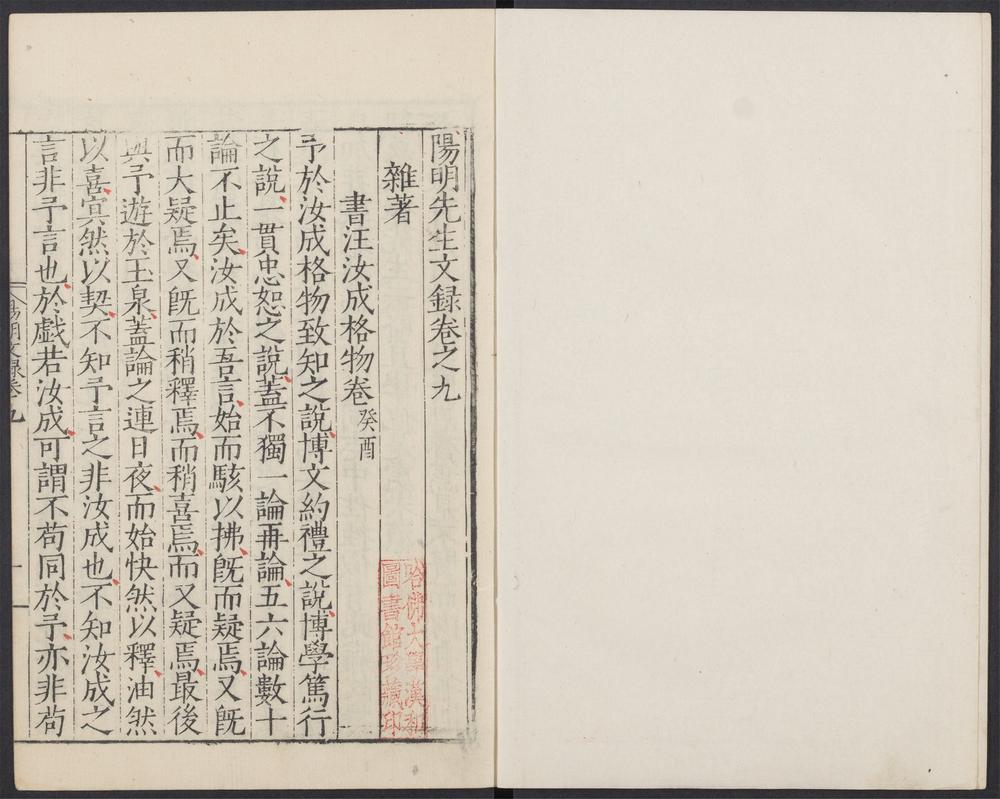 陽明先生文録卷之九
雜著
書汪汝成格物卷 癸酉
予於汝成格物致知之說博文約禮之說博學篤行
之說一貫忠恕之說蓋不獨一論再論五六論數十
論不止矣汝成於吾言始而駭以拂既而疑焉又既
而大疑焉又既而稍釋焉而稍喜焉而又疑焉最後
與予遊於玉泉蓋論之連日夜而始快然以釋油然
以喜㝠然以契不知予言之非汝成也不知汝成之
言非予言也於戱若汝成可謂不苟同於予亦非苟
陽明文録卷九
一
哈佛大學漢和
圖書館珍藏印